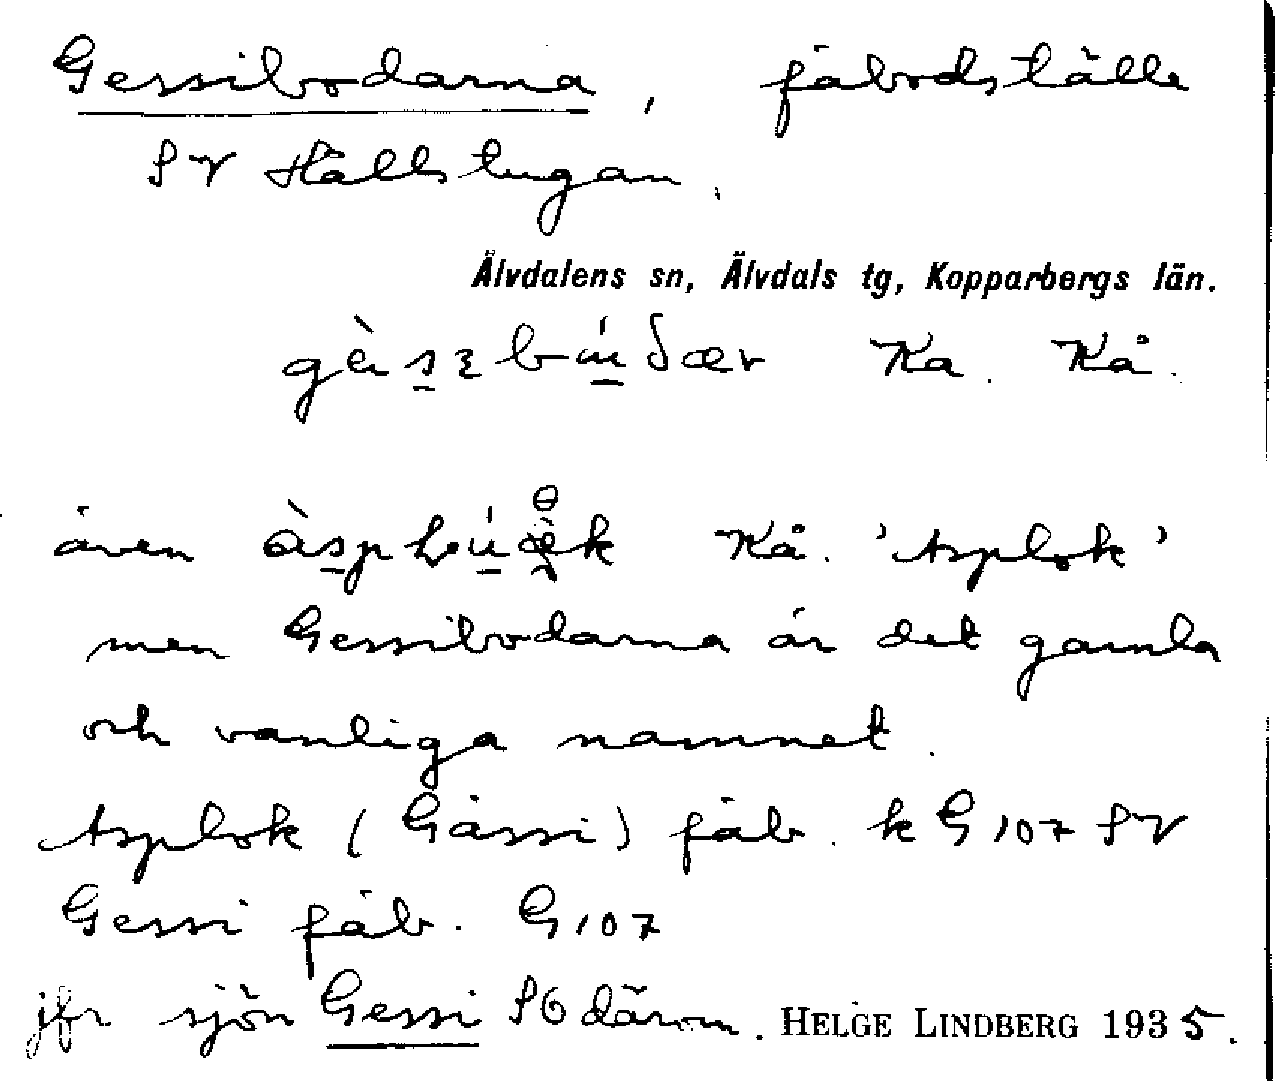 Gessibodarna, fäbodställe
SV Hållstugan.
Älvdalens sn, Älvdals tg, Kopparbergs län.
Ka. Kå.
även Kå. 'Asplok'
men Gessibodarna är det gamla
och vanliga namnet.
Asplok (Gässi) fäb. k G 107 SV
Gessi fäb. G 107
jfr sjön Gessi SO därom. HELGE LINDBERG 1935.